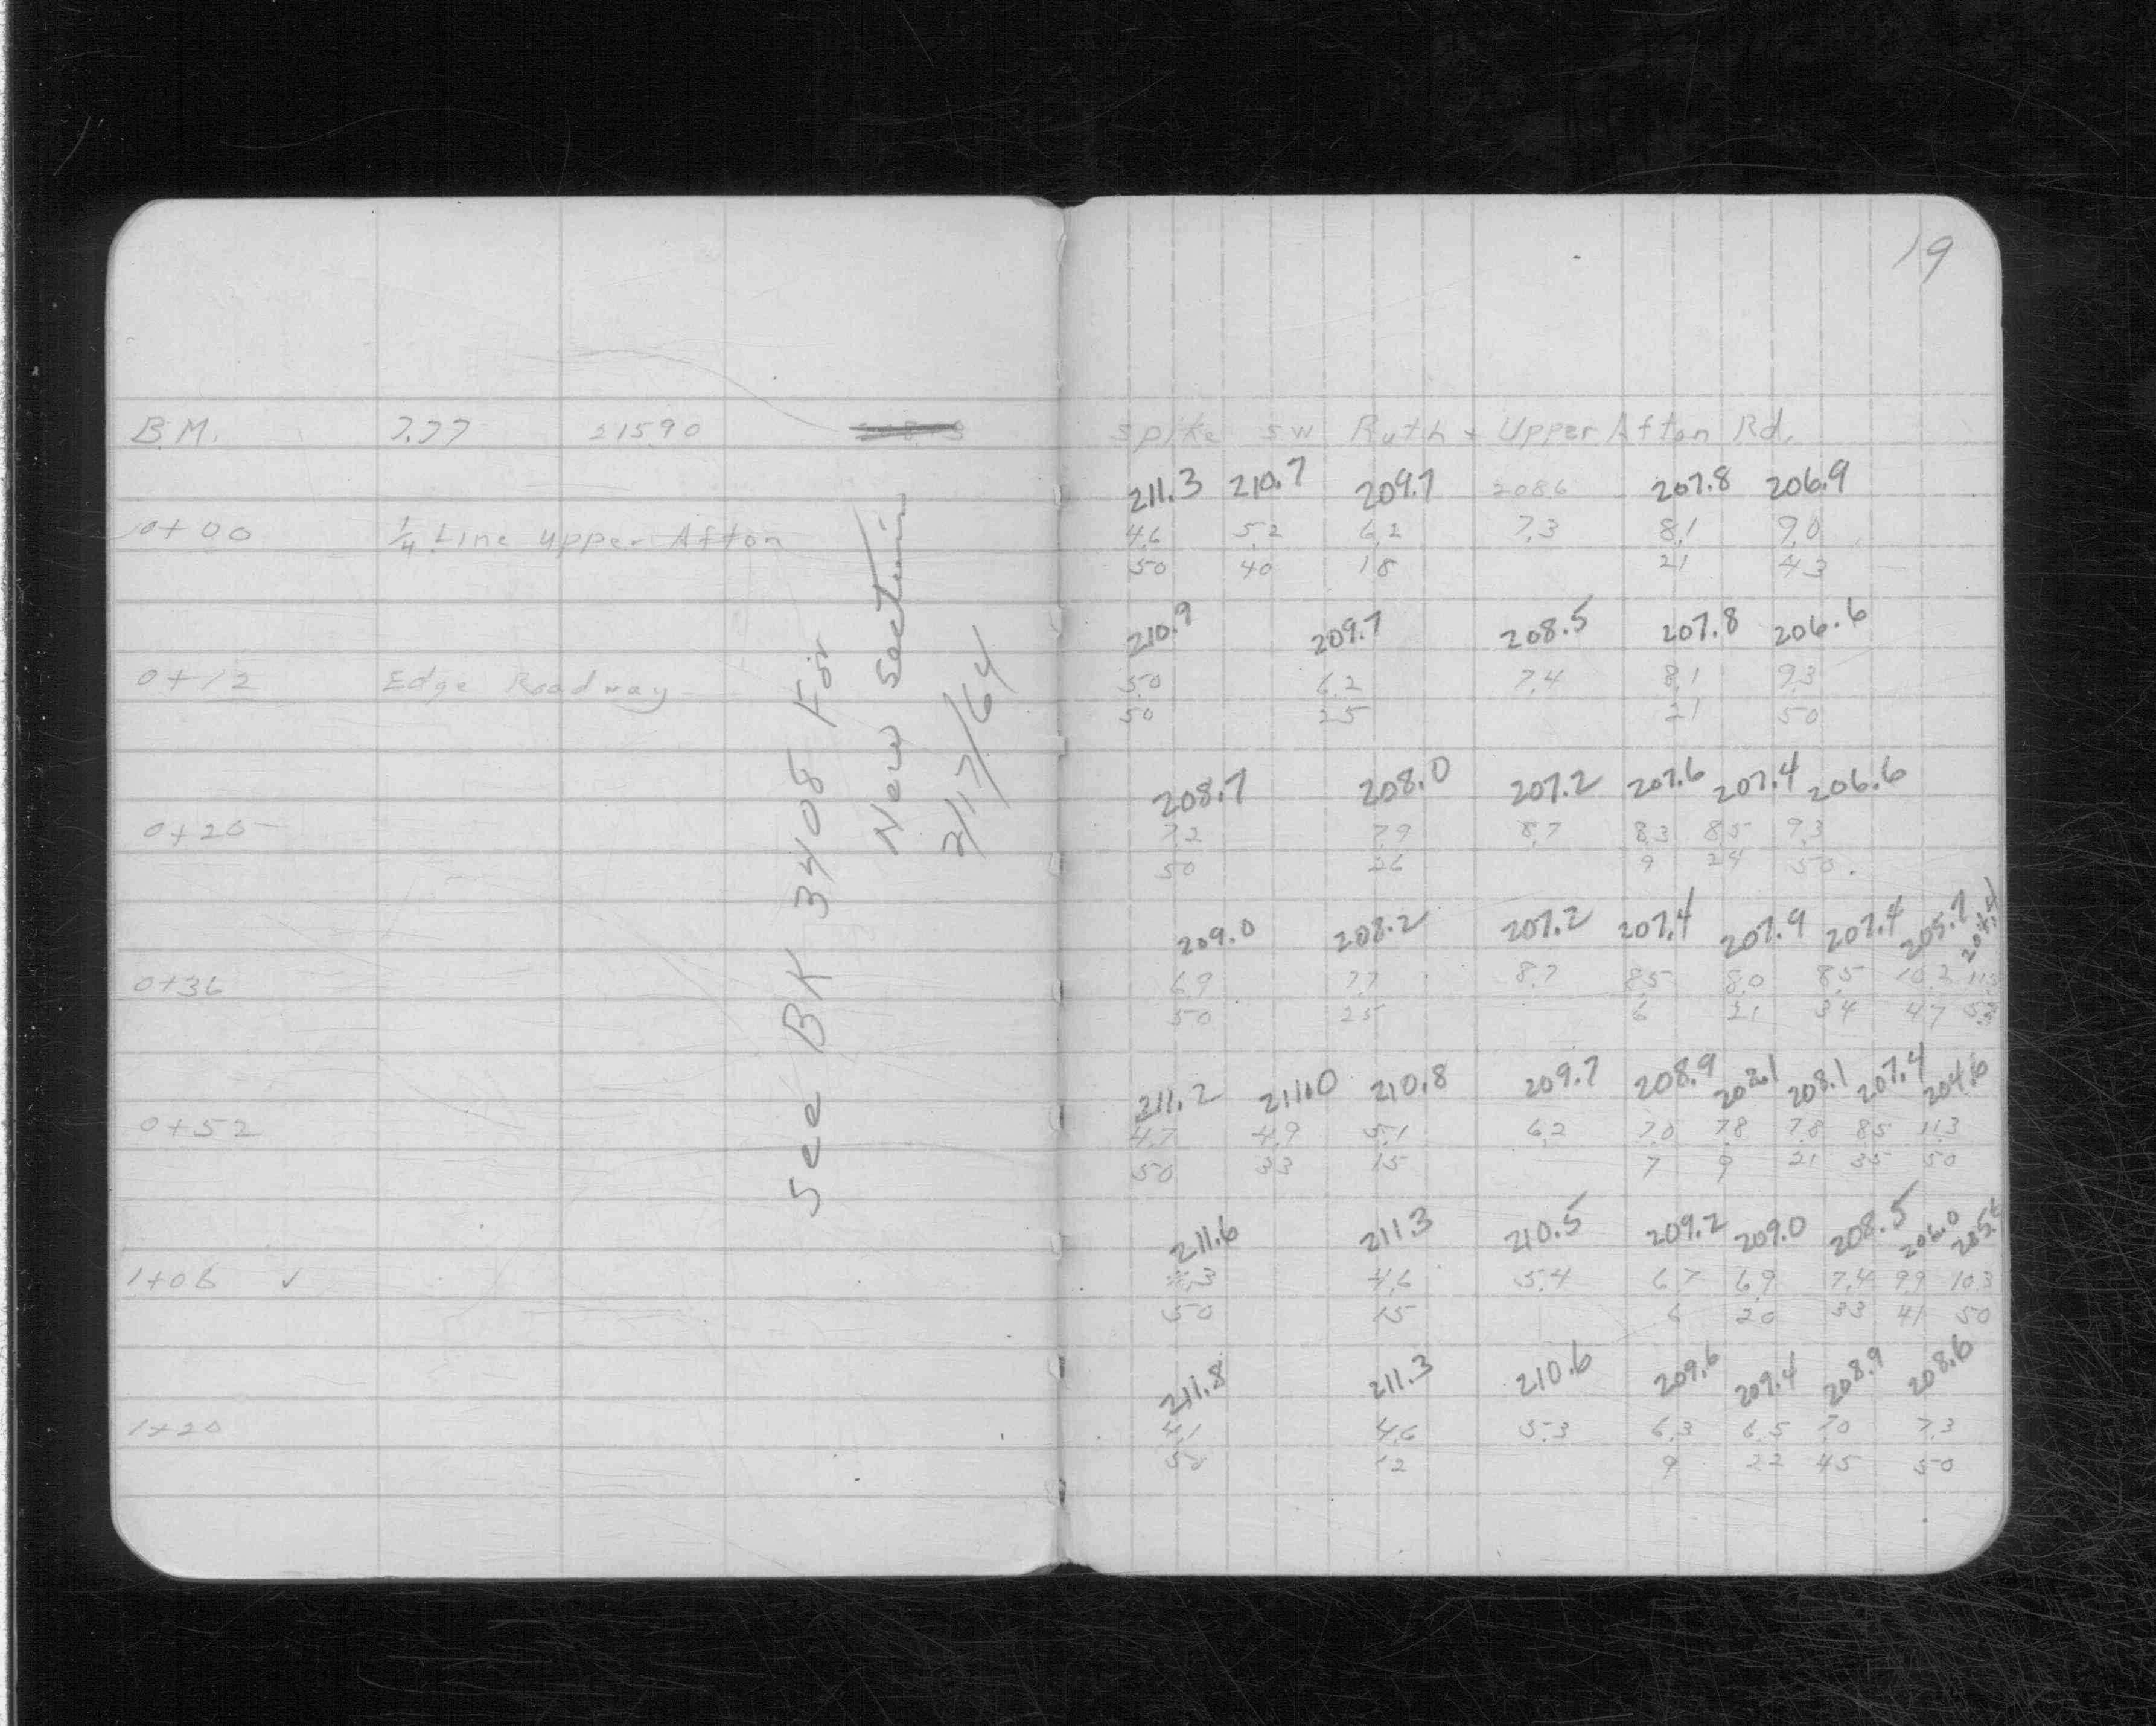 19
B.M. 7.77 215.90 Spike SW Ruth + Upper Afton Rd.
211.3 210.7 209.7 208.6 207.8 206.9
0+00 1/4 Line Upper Afton 4.6 5.2 6.2 7.3 8.1 9.0
50 40 18 21 43
210.9 209.7 208.5 207.8 206.6
0+12 Edge Roadway 5.0 6.2 7.4 8.1 9.3
50 25 21 50
208.7 208.0 207.2 207.6 207.4 206.6
0+20 7.2 7.9 8.7 8.3 8.5 9.3
50 26 9 24 50
209.0 208.2 207.2 207.4 207.9 207.4 205.7
0+36 6.9 7.7 8.7 8.5 8.0 8.5 10.2
50 25 6 21 34 47
211.2 211.0 210.8 209.7 208.9 208.1 208.1 207.4 204.6
0+52 4.7 4.9 5.1 6.2 7.0 7.8 7.8 8.5 11.3
50 33 15 7 9 21 35 50
211.6 211.3 210.5 209.2 209.0 208.5 206.0 205.6
1+06 ✓ 4.3 4.6 5.4 6.7 6.9 7.4 9.9 10.3
50 15 6 20 33 41 50
211.8 211.3 210.6 209.6 209.4 208.9 208.6
1+20 4.1 4.6 5.3 6.3 6.5 7.0 7.3
50 12 9 22 45 50
See BK 3408 For
New Section
2/17/64